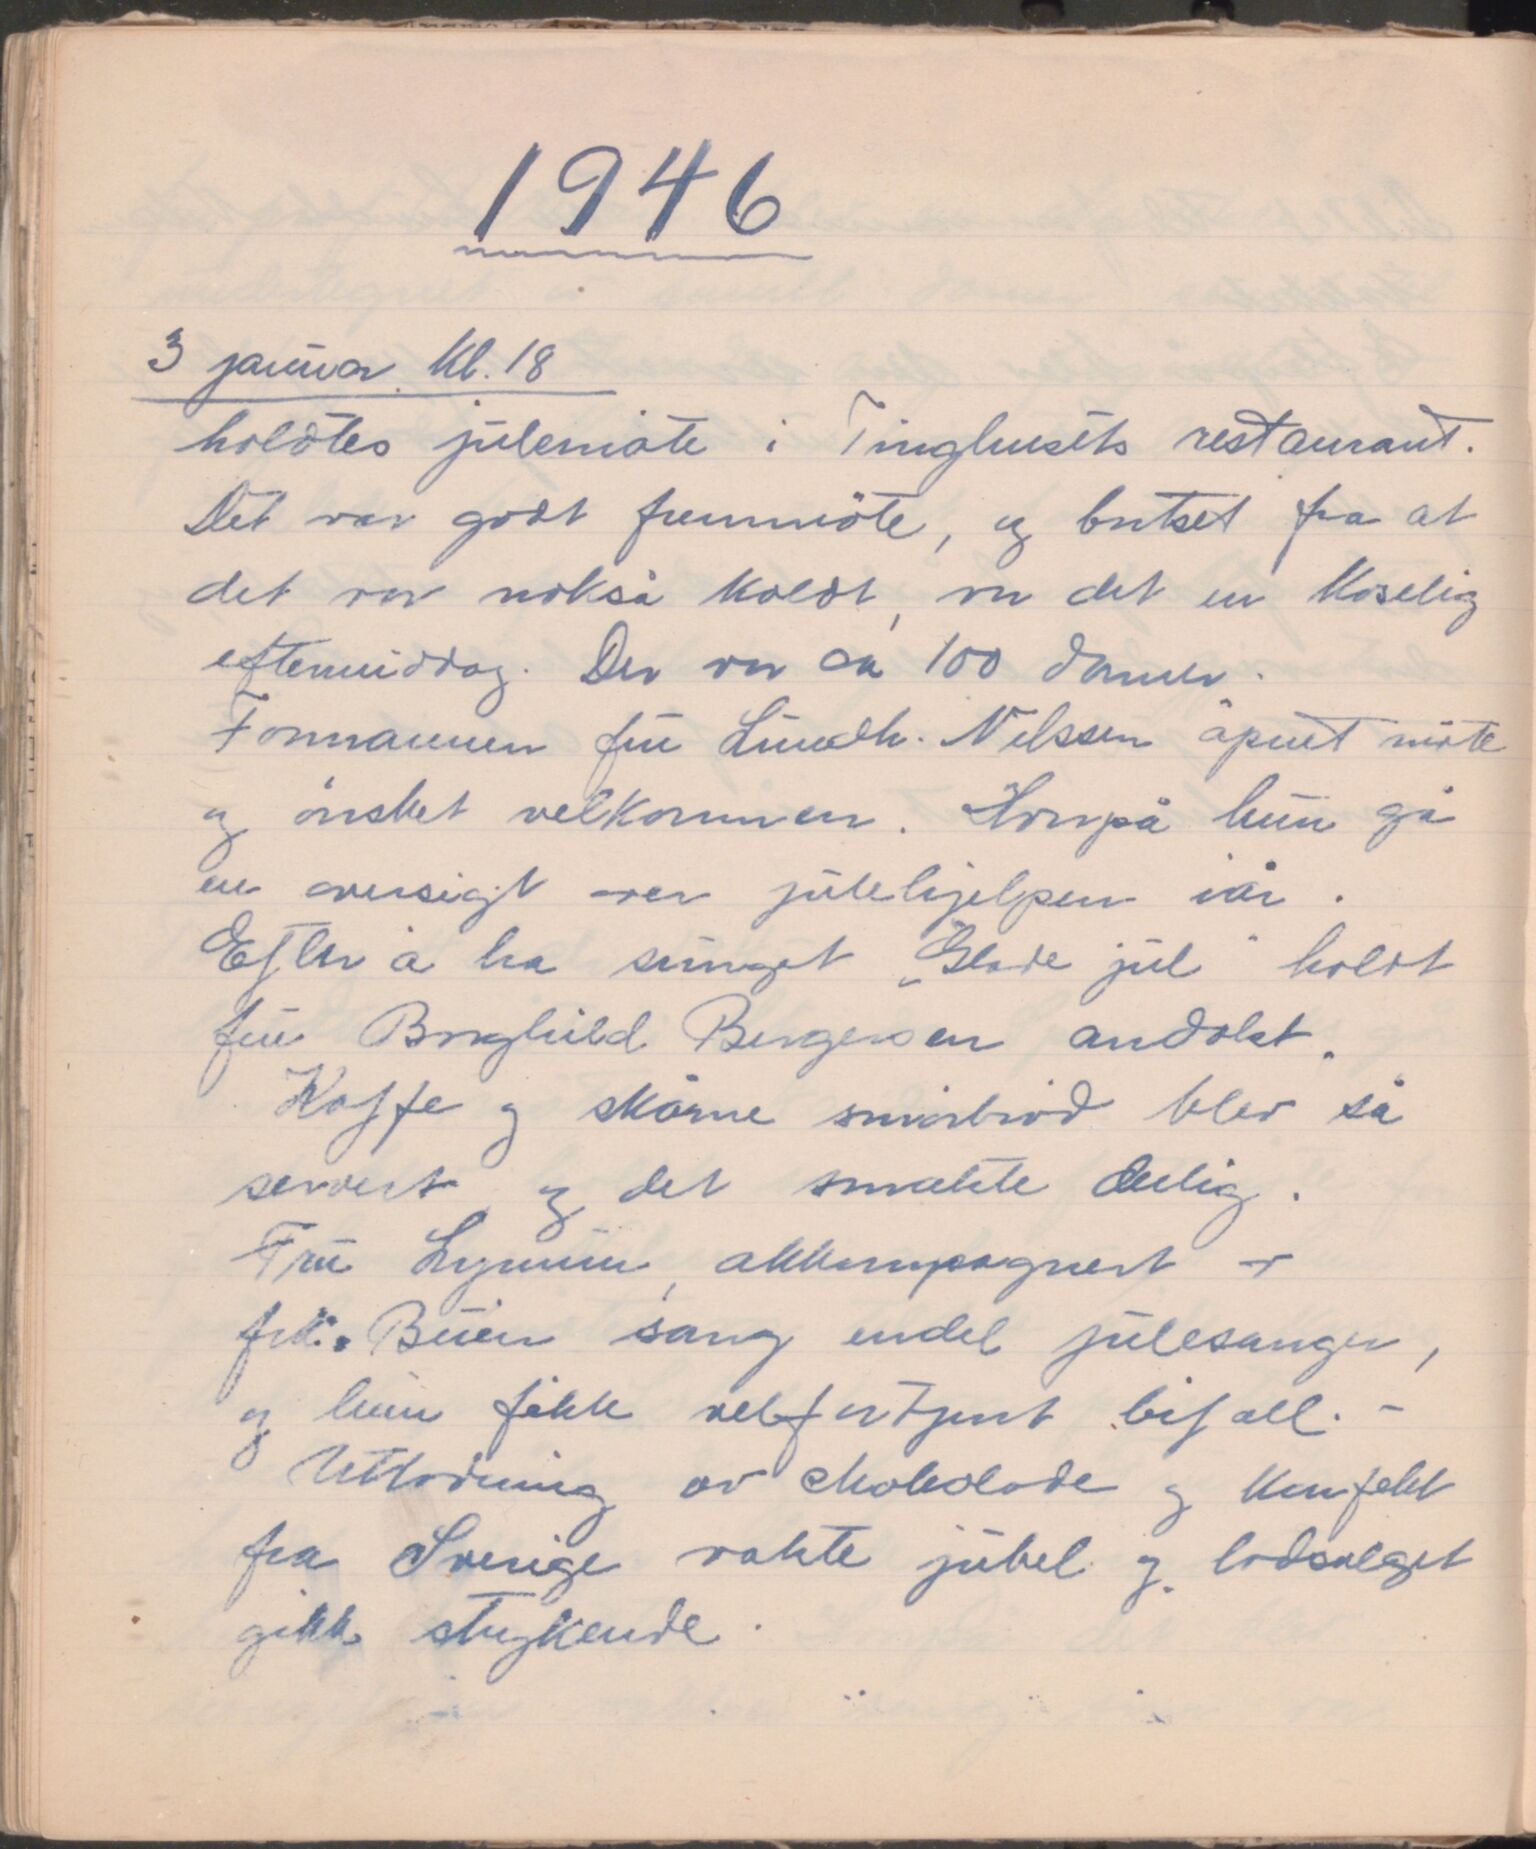 1946
3 januar kl. 18
holdtes julemöte i Tinghusets restaurant.
Det var godt fremmöte, og bortset fra at
det var nokså koldt, var det en koselig
eftermiddag. Der var ca 100 damer.
Formannen fru Lindh. Nilssen åpnet möte
og önsket velkommen. Hvorpå hun ga
en oversigt over julehjelpen iår.
Efter å ha sunget "Glade jul" holdt
fru Borghild Bergersen andakt.
Kaffe og skårne smörbröd blev så
servert og det smakte deilig.
Fru akkompagnert av
frk. Buer sang endel julesanger,
og hun fikk velfortjent bifall. -
Utlodning av chokolade og konfekt
fra Sverige vakte jubel og lodsalget
gikk strykende.